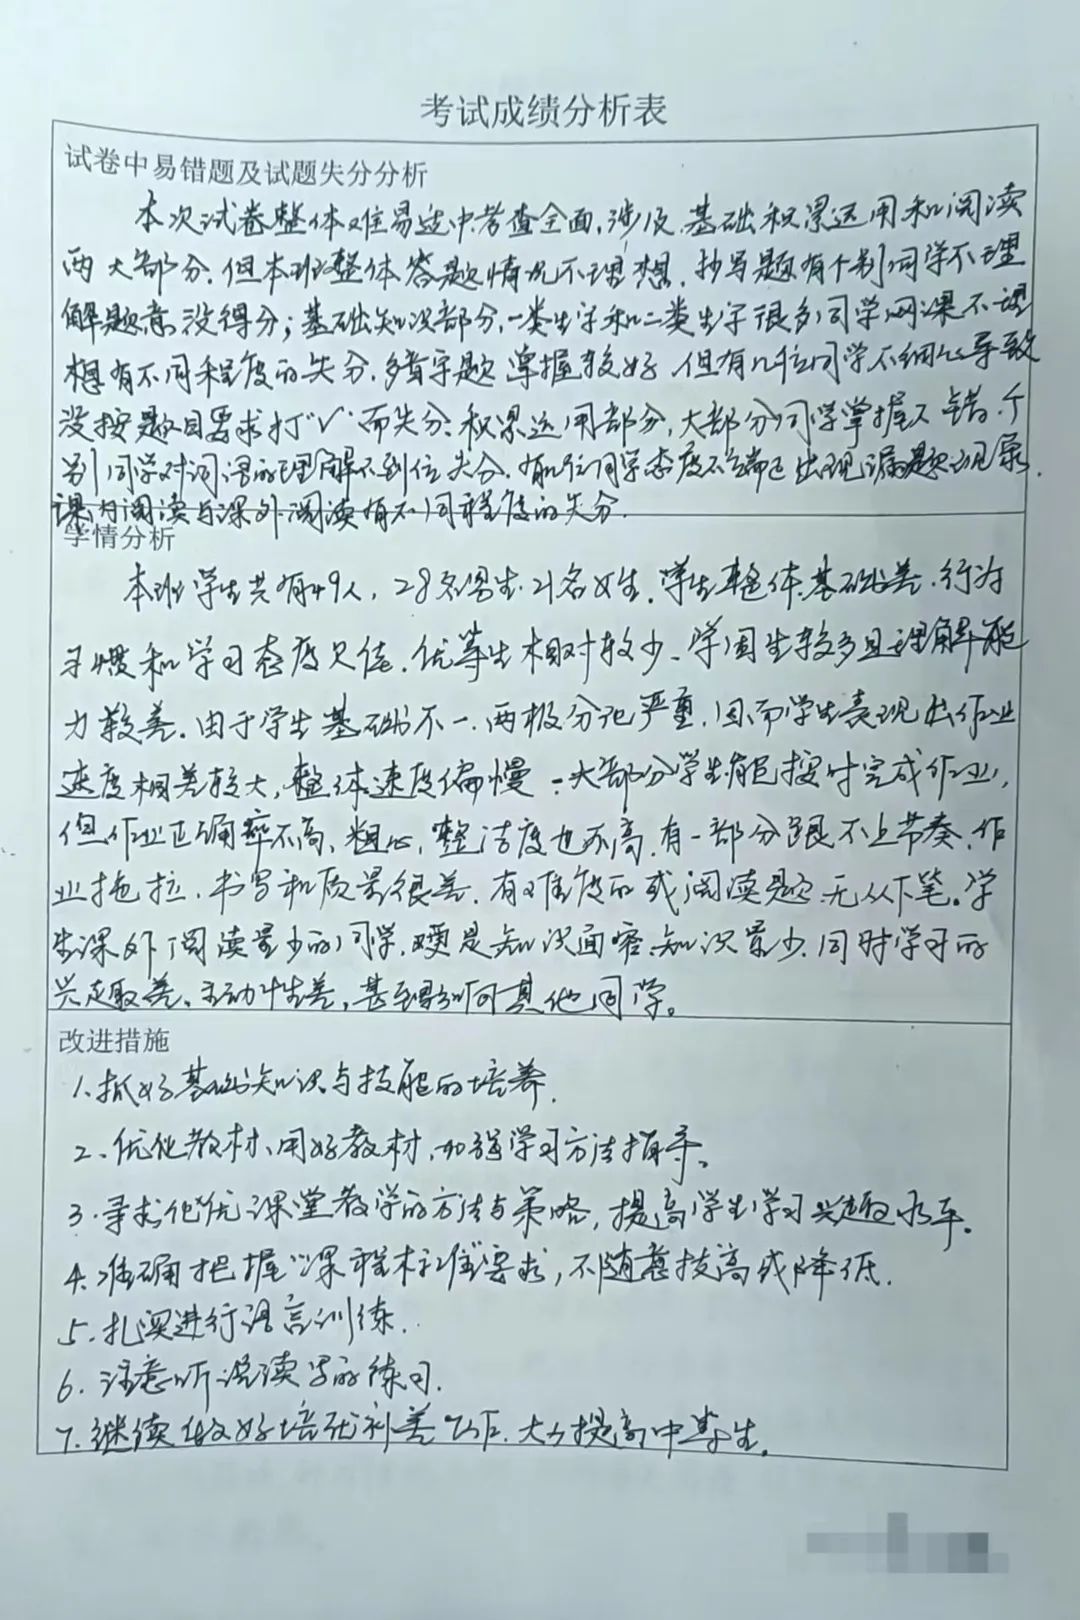 考试成绩分析表
试卷中易错题及试题失分分析
本次试卷整体难易适中,考查全面,涉及基础积累运用和阅读
两大部分.但本班整体答题情况不理想.抄写题有个别同学不理
解题意没得分;基础知识部分,一类生字和二类生字很多同学网课不理
想有不同程度的失分.多音字题掌握较好,但有几位同学不细心导致
没按题目要求打“√”而失分.积累运用部分,大部分同学掌握不错.个
别同学对词语的理解不到位失分.有几位同学态度不端正出现漏题现象.
课内阅读与课外阅读有不同程度的失分.
学情分析
本班学生共有49人,28名男生.21名女生.学生整体基础差.行为
习惯和学习态度欠佳.优等生相对较少、学困生较多且理解能
力较差.由于学生基础不一.两极分化严重,因而学生表现出作业
速度相差较大,整体速度偏慢.大部分学生能按时完成作业,
但作业正确率不高,粗心,整洁度也不高.有一部分跟不上节奏.作
业拖拉.书写和质量很差.有难度的或阅读题无从下笔。学
生课外阅读量少的同学,更是知识面窄.知识量少.同时学习的
兴趣差、主动性差,甚至影响其他同学。
改进措施
1.抓好基础知识与技能的培养.
2、优化教材、用好教材,加强学习方法指导。
3.寻求优化课堂教学的方法与策略,提高学生学习兴趣水平。
4.准确把握“课程标准”要求,不随意拔高或降低.
5.扎实进行语言训练.
6.注意听说读写的练习.
7.继续做好培优补差工作.大力提高中等生.